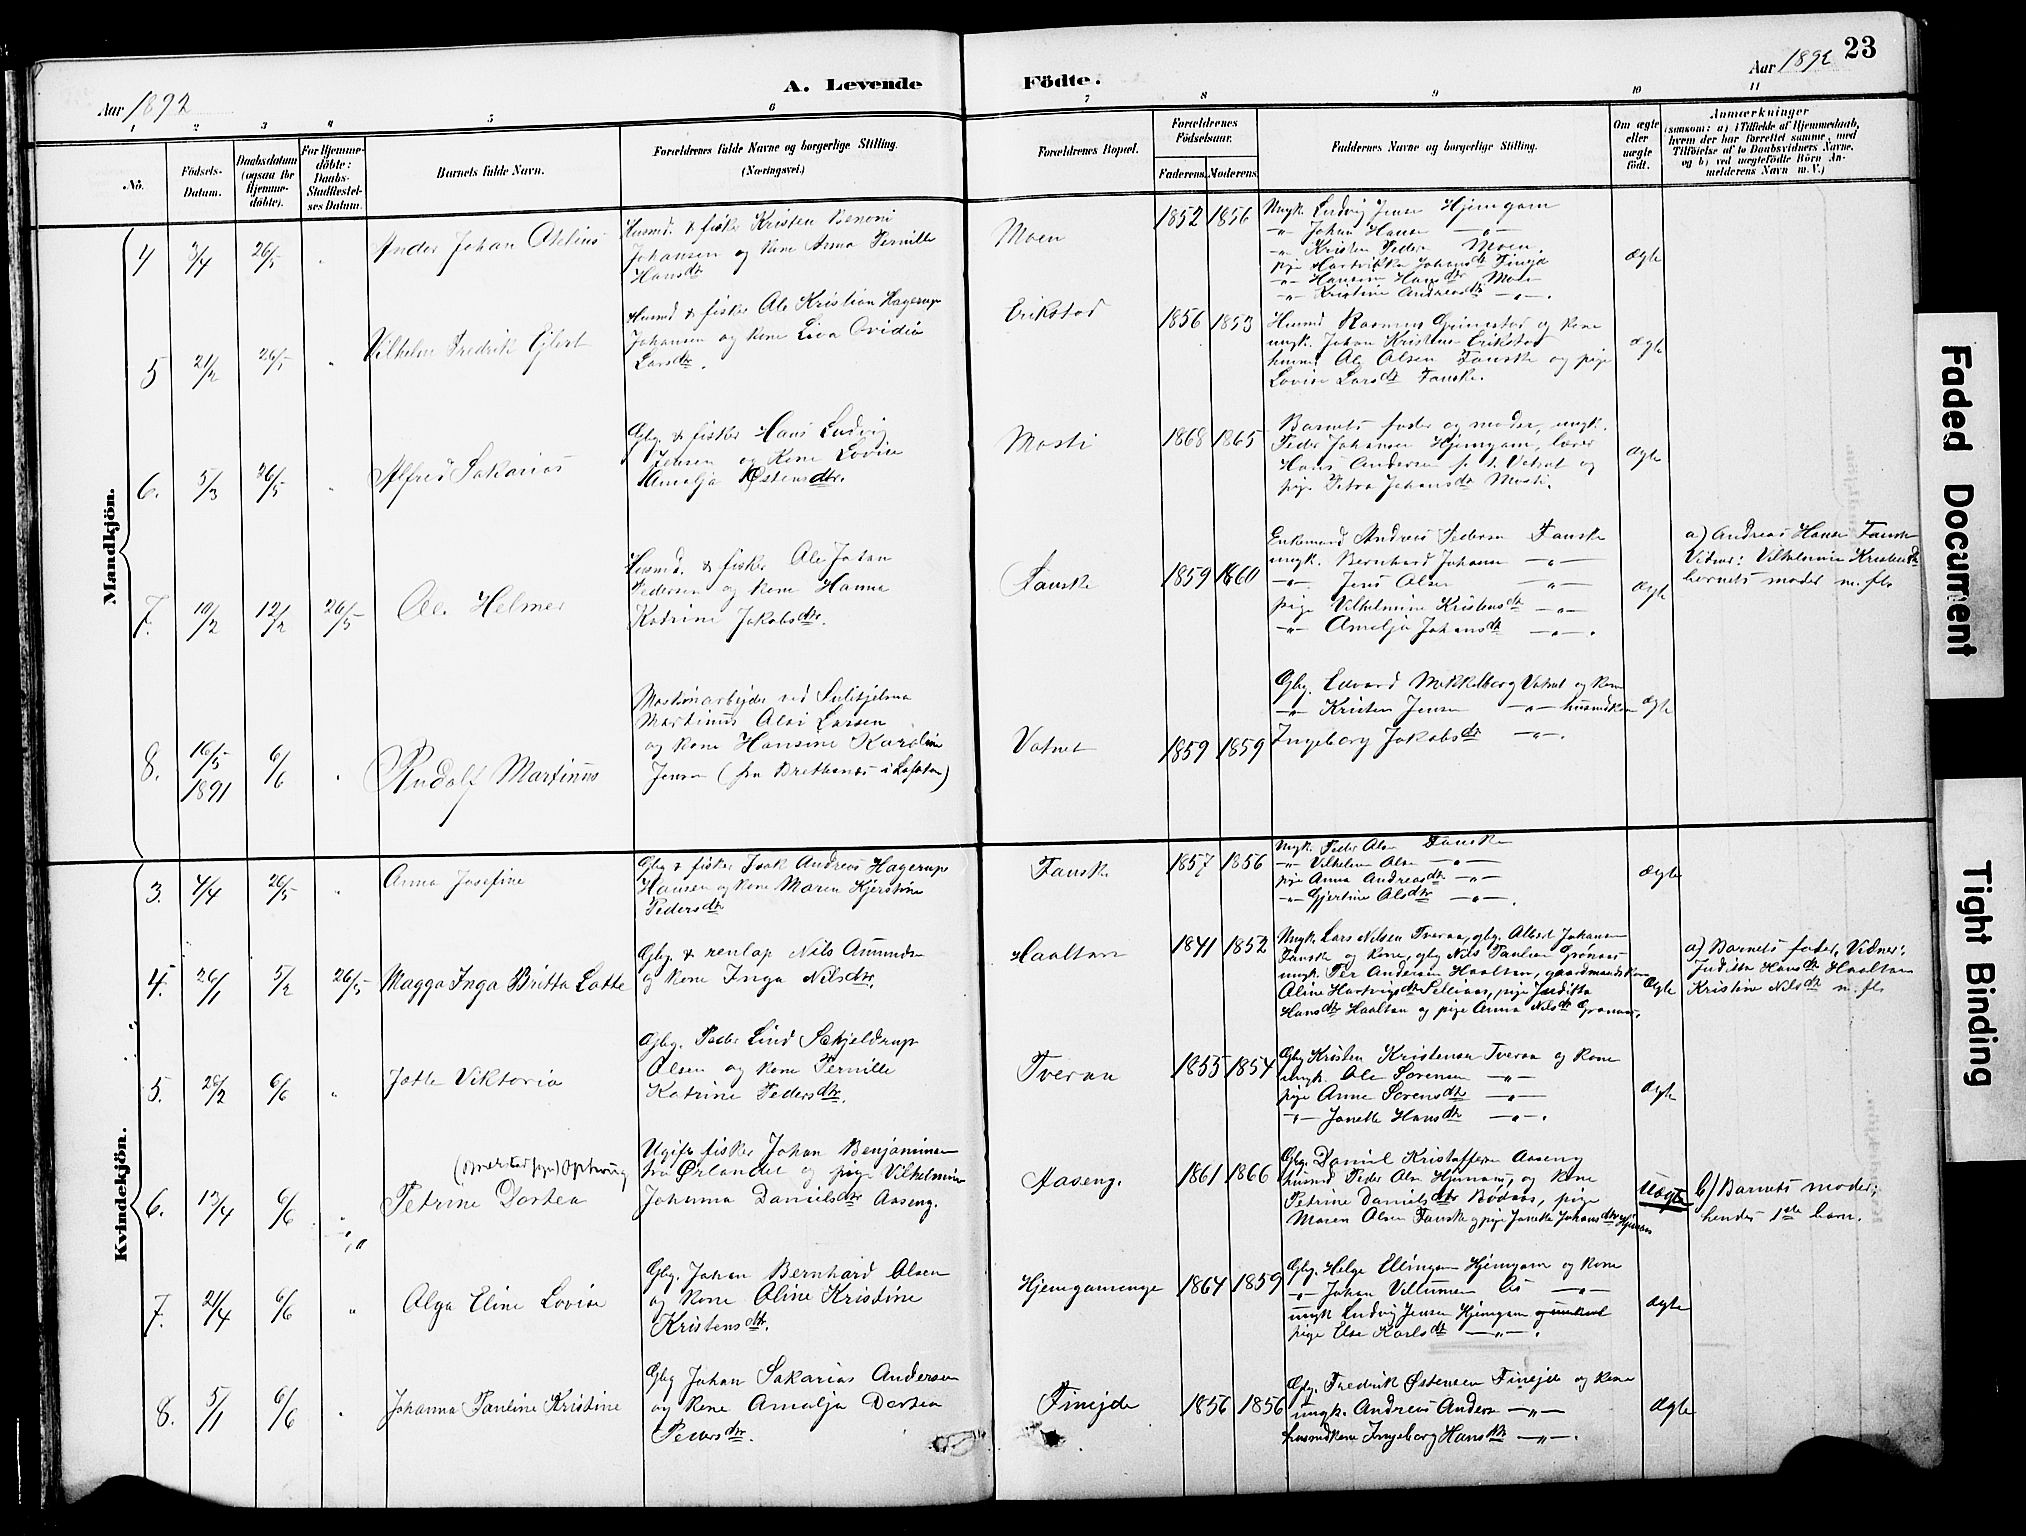 23
Aar 1892
A. Levende
Födte.
Aar 1892
1 2 3 4 5 6 7 8 9 10 11
No.
Födsels-
Datum.
Daabsdatum
(ogsaa for
Hjemme-
döbte).
For Hjemme-
döbte:
Daabs-
Stadfæstel-
ses Datum.
Barnets fulde Navn.
Forældrenes fulde Navne og borgerlige Stilling.
(Næringsvei.)
Forældrenes Bopæl.
Forældrenes
Födselsaar.
Faderens. Moderens.
Faddernes Navne og borgerlige Stilling.
Om ægte
eller
uægte
født.
Anmærkninger
(saasom: a) i Tilfælde af Hjemmedaab,
hvem der har forrettet samme, med
Tilföielse af to Daabsvidners Navne,
og b) ved uægtefödte Börn An-
melderens Navn m. V.)
Mandkjön.
4 3/4 26/5 "
Husmd. & fisker Kristen Benoni
Johansen og kone Anna Pernille
Hansdtr
Moen
1852 1856
Ungk. Ludvig Jensen Hjemgam
-"- Johan Hansen -"-
-"- Kristen Peders. Moen.
ægte
5 21/2 26/5 "
Vilhelm Fredrik Ejlert
Husmd & fisker Ole Kristian Hagerup
Johansen og kone Lisa Ovidia
Larsdtr.
Erikstad
1856 1853
ungk. Johan Kristens Erikstad
husmd. Ole Olsen Fauske og pige
Lovise Larsdtr Fauske.
ægte
6. 5/3 26/5 "
Alfred Sakarias
Gbg. & fisker Hans Ludvig
Jensen og kone Lovise
Amalja Østensdtr.
Mosti
1868 1865
Barnets fader og moder, ungk.
Peder Johansen Hjemgam, lærer
Hans Andersen p. t. Vatnet og
pige Petra Johansdtr Mosti.
ægte
7. 10/2 12/2 26/5
Ole Helmer
Husmd. & fisker Ole Johan
Pedersen og kone Hanna
Katrine Jakobsdtr.
Fauske
1859 1860
Enkemand Andreas Pedersen Fauske
ungk. Bernhard Johansen -"-
-"- Jens Olsen -"-
pige Vilhelmine Kristensdtr -"-
-"- Amalja Johansdtr -"-.
ægte
a) Andreas Hansen Fauske
Vidner: Vilhelmine Kristensdtr
barnets moder m. fl.
8. 16/5 1891 6/6 "
Rudolf Martinus
Maskinarbejder ved Sulitjelma
Martinus Olai Larsen
og kone Hansine Karoline
Jensen (fra Brettesnæs i Lofoten)
Vatnet
1859 1859
Gbg. Edvard Mikkelborg Vatnet og kone
-"- Kristen Jensen -"- husmdkone
Ingeborg Jakobsdtr -"-.
ægte
Kvindekjön.
3. 4/4 26/5 "
Anna Josefine
Gbg & fisker Isak Andreas Hagerup
Hansen og kone Maren Kjerstine
Pedersdtr
Fauske
1857 1856
Ungk. Peder Olsen Fauske
-"- Vilhelm Olsen -"-
pige Anna Andreasdtr -"-
-"- Gjertine Olsdtr -"-.
ægte
4. 26/1 5/2 26/5
Magga Inga Britta Lotte
Gbg. & renlap Nils Amundsen
og kone Inga Nilsdtr.
Haaltan
1841 1852
Ungk. Lars Nilsen Tveraa, gbg. Albert Johansen
Fauske og kone, gbg Nils Paulsen Grønaas
ungk. Per Andersen Haaltan, gaardmandskone
Aline Hartvigsdtr Selliaas, pige Juditta
Hansdtr Haaltan og pige Anna Nilsdtr Grønaas.
Ægte
a) Barnets fader, Vidner:
Juditta Hansdtr Haaltan
Kristine Nilsdtr m. fl.
5. 26/2 6/6 "
Jette Viktoria
Gbg. Peder Lind Schjeldrup
Olsen og kone Pernille
Katrine Pedersdtr.
Tveraa
1853 1854
Gbg Kristen Kristensen Tveraa og kone
ungk. Ole Sørensen -"-
pige Anne Sørensdtr -"-
-"- Janette Hansdtr -"-.
ægte
6. 17/4 6/6 "
Petrine Dortea
Ugift fisker Johan Benjaminsen
fra Ørlandet og pige Vilhelmine
Johanna Danielsdtr Aaseng.
Aaseng.
1861 1866
Gbg. Daniel Kristoffersen Aaseng
husmd Peder Olsen Hjemaas, og kone
Petrine Danielsdtr Bodøen, pige
Maren Olsen Fauske og pige Janette Johansdtr Hjemaas
Uægte
b) Barnets moder;
hendes 1ste barn.
7. 21/4 6/6 "
Olga Eline Lovise
Gbg. Johan Bernhard Olsen
og kone Oline Kristine
Kristensdtr.
Hjemgamenge
1864 1859
Gbg. Helge Ellingsen Hjemgam og kone
-"- Johan Villumsen Os -"-
ungk Ludvig Jensen Hjemgam
pige Else Karlsdtr -"-.
ægte
8. 5/1 6/6 "
Johanna Pauline Kristine
Gbg Johan Sakarias Andersen
og kone Amalja Dortea
Pedersdtr.
Finejde
1856 1856
Gbg. Fredrik Østensen Finejde og kone
ungk. Andreas Anders. -"-
husmdkone Ingeborg Hansdtr -"-.
Ægte
Faded Document
Tight Binding